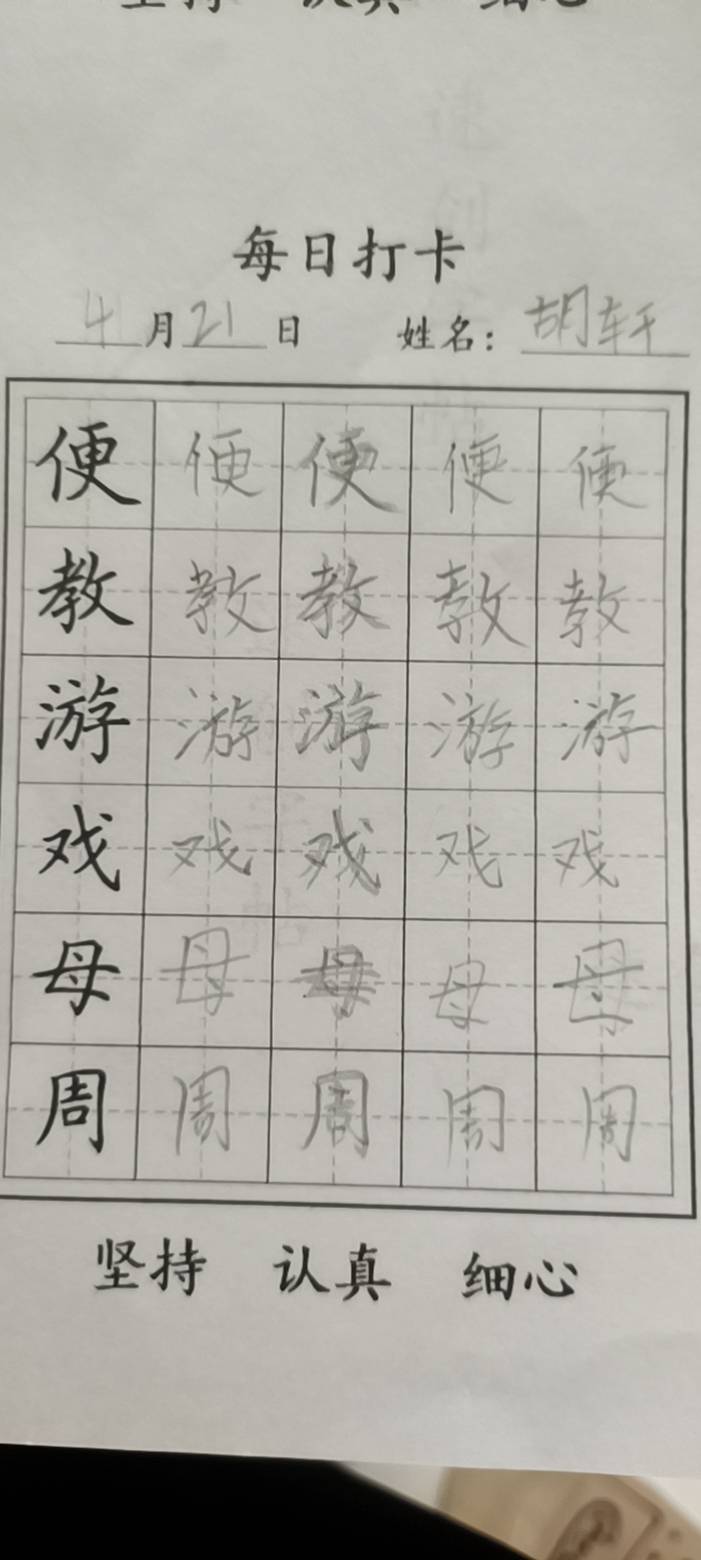 坚持 认真 细心
每日打卡
4月21日 姓名：胡轩
便 便 便 便 便
教 教 教 教 教
游 游 游 游 游
戏 戏 戏 戏 戏
母 母 母 母 母
周 周 周 周 周
坚持 认真 细心